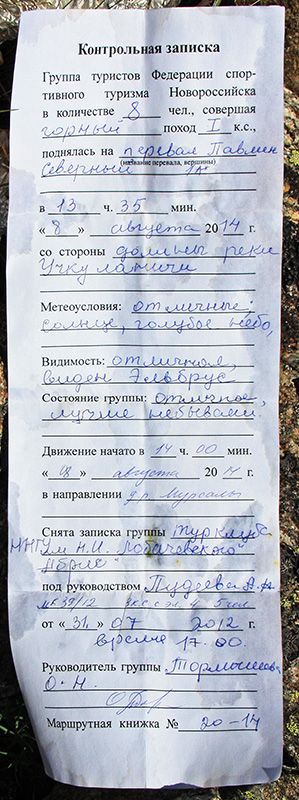 Контрольная записка
Группа туристов Федерации спор-
тивного туризма Новороссийска
в количестве 8 чел., совершая
горный поход I к.с.,
поднялась на перевал Павлен
(название перевала, вершины)
Северный 1А
в 13 ч. 35 мин.
« 8 » августа 2014 г.
со стороны долины реки
Учкуланичи
Метеоусловия: отличные:
солнце, голубое небо,
Видимость: отличная,
виден Эльбрус
Состояние группы: отличное,
лучше не бывает.
Движение начато в 14 ч. 00 мин.
« 08 » августа 2014 г.
в направлении
Снята записка группы турклуба
ННГУ им Н.И. Лобачевского
под руководством
№ 39/12 5 чел.
от « 31 » 07 2012 г.
время 17.00.
Руководитель группы
О.Н.
Маршрутная книжка № 20-14